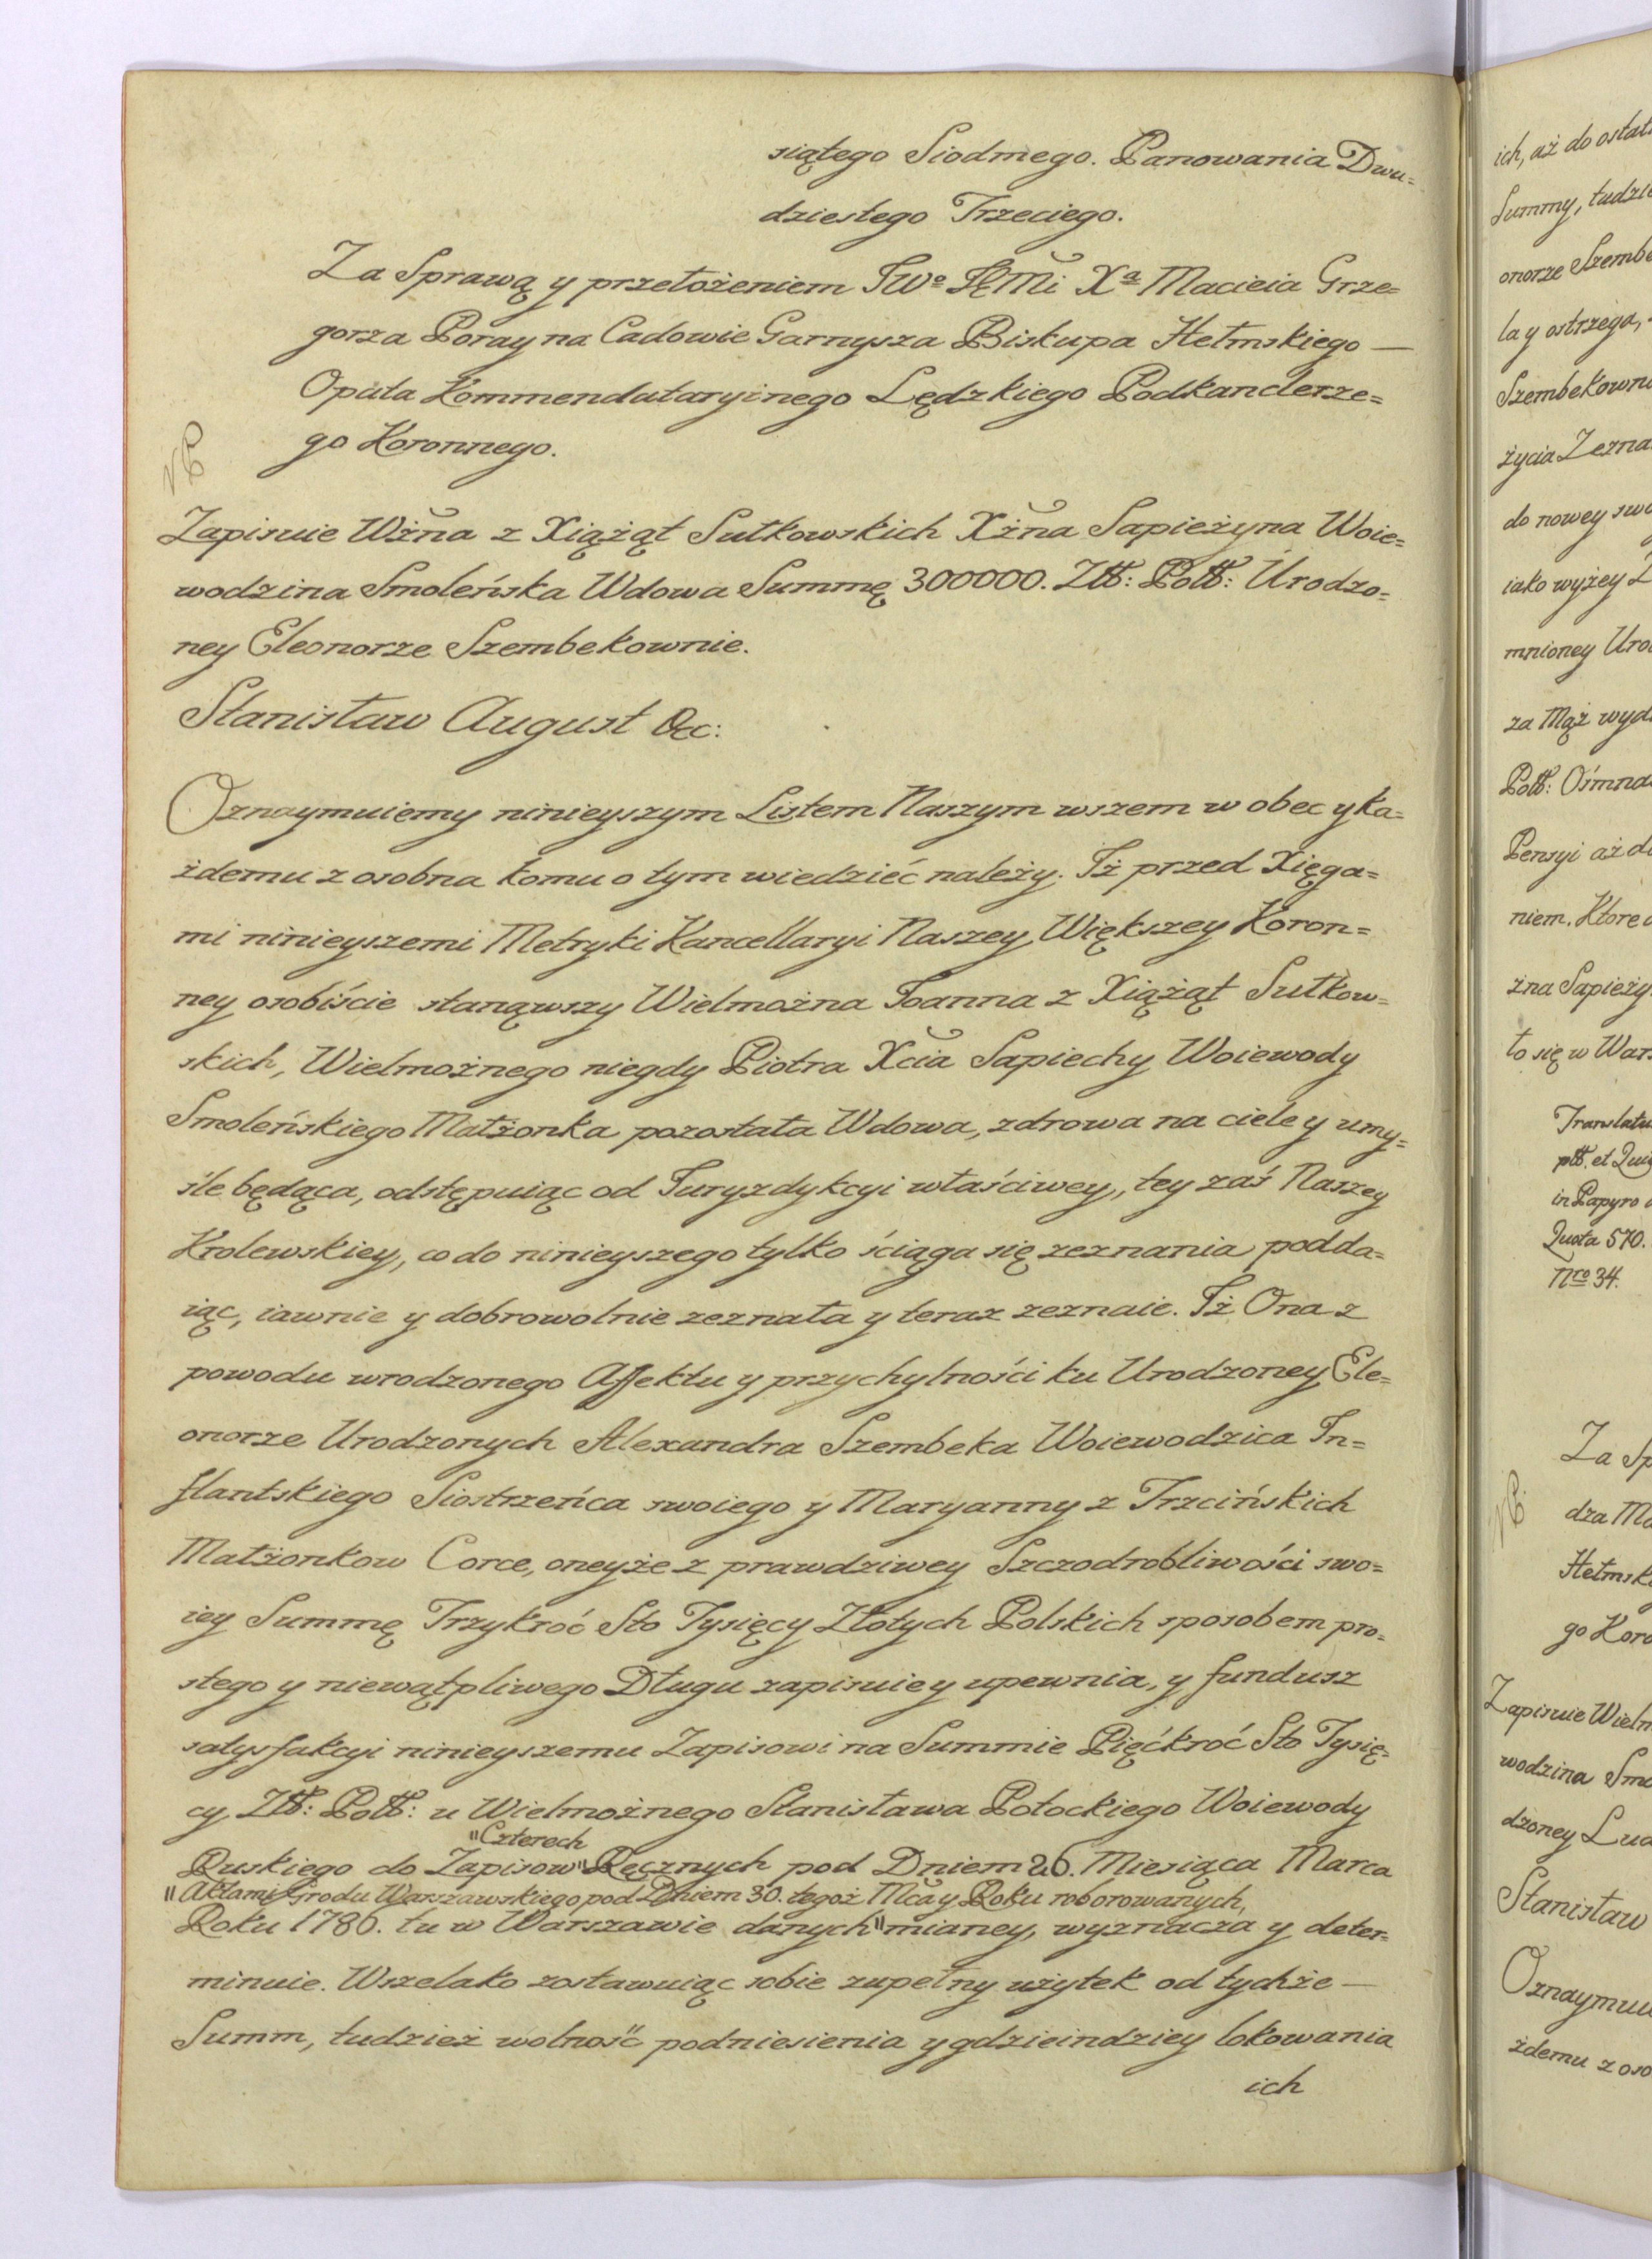 siątego Siodmego. Panowania Dwu=
dziestego Trzeciego.
Za Sprawą y przełożeniem JWº JX Mi Xª Macieia Grze=
gorza Poray na Cadowie Garnysza Biskupa Hełmskiego —
Opata Kommendataryinego Lędzkiego Podkanclerze=
go Koronnego.
Zapisuie Wżna z Xiążąt Sułkowskich Xżna Sapieżyna Woie=
wodzina Smoleńska Wdowa Summę 300000. Złł: Poll: Urodzo=
ney Eleonorze Szembekownie.
Stanisław August &c:
Oznaymuiemy ninieyszym Listem Naszym wszem w obec y ka=
żdemu z osobna komu o tym wiedzieć należy. Iż przed Xięga=
mi ninieyszemi Metryki Kancellaryi Naszey Większey Koron=
ney osobiście stanąwszy Wielmożna Joanna z Xiążąt Sułkow=
skich, Wielmożnego niegdy Piotra Xcia Sapiechy Woiewody
Smoleńskiego Małżonka pozostała Wdowa, zdrowa na ciele y umy=
śle będąca, odstępuiąc od Juryzdykcyi właściwey, tey zaś Naszey
Krolewskiey, co do ninieyszego tylko ściąga się zeznania podda=
iąc, iawnie y dobrowolnie zeznała y teraz zeznaie. Iż Ona z
powodu wrodzonego Affektu y przychylności ku Urodzoney Ele=
onorze Urodzonych Alexandra Szembeka Woiewodzica In=
flantskiego Siostrzeńca swoiego y Maryanny z Trzcińskich
Małżonkow Corce, oneyże z prawdziwey Szczodrobliwości swo=
iey Summę Trzykroć Sto Tysięcy Złotych Polskich sposobem pro=
stego y niewątpliwego Długu zapisuie y upewnia, y fundusz
satysfakcyi ninieyszemu Zapisowi na Summie Pięćkroć Sto Tysię=
cy Złł: Poll: u Wielmożnego Stanisława Potockiego Woiewody
"Czterech
Ruskiego do Zapisow" Ręcznych pod Dniem 26. Miesiąca Marca
"Aktami Grodu Warszawskiego pod Dniem 30. tegoż Mca y Roku roborowanych,
Roku 1786. tu w Warszawie danych" mianey, wyznacza y deter=
minuie. Wszelako zostawuiąc sobie zupełny użytek od tychże —
Summ, tudzież wolność podniesienia y gdzieindziey lokowania
ich
ich, aż do ostat
Summy, tudzie
onorze Szembe
la y ostrzega,
Szembekown
życia Zezna
do nowey swo
iako wyżey
mnioney Uro
za Mąż wyd
Poll: Ośmna
Pensyi aż do
niem. Ktore
żna Sapieży
to się w War
Translatu
pll. et Qui
in Papyro
Quota 570.
Nro 34.
Za Sp
dza Ma
Hełmsk
go Koro
Zapisuie Wielm
wodzina Smo
dzoney Lud
Stanisław
Oznaymui
żdemu z oso